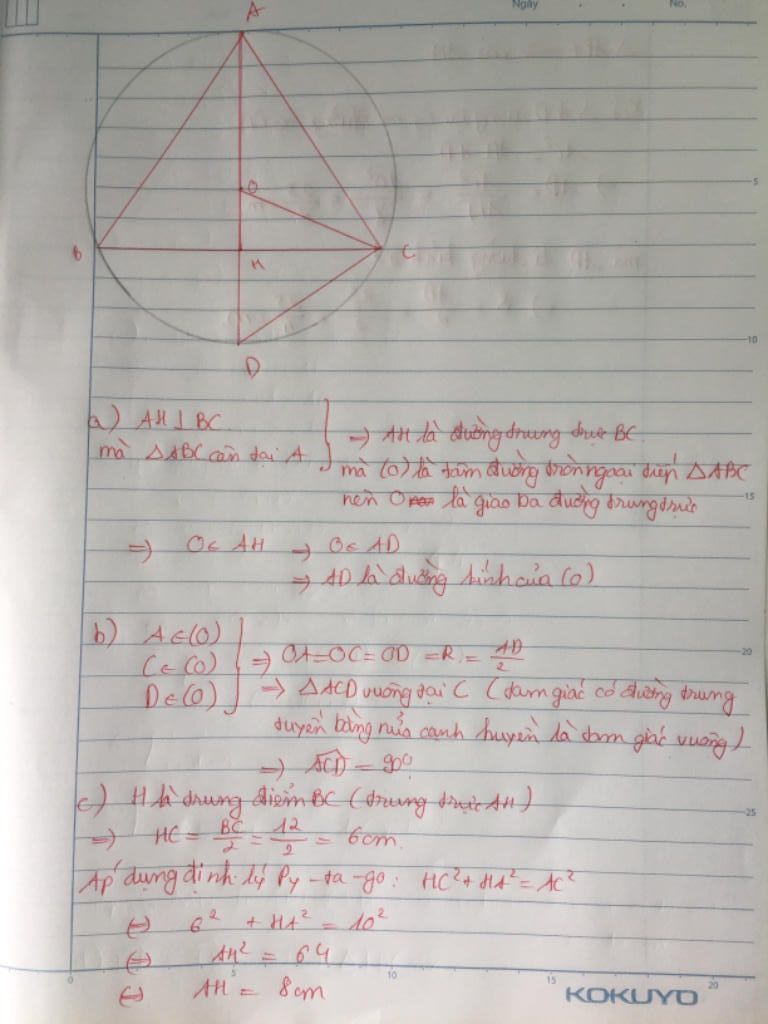 Ngày
No.
A
O
5
B
H
C
10
D
a) AH ⊥ BC
mà △ABC cân tại A
} ⇒ AH là đường trung trực BC
mà (O) là tâm đường tròn ngoại tiếp △ABC
15
nên O là giao ba đường trung trực
⇒ O ∈ AH → O ∈ AD
⇒ AD là đường kính của (O)
b) A ∈ (O)
C ∈ (O)
D ∈ (O)
} ⇒ OA = OC = OD = R = AD/2
20
⇒ △ACD vuông tại C (tam giác có đường trung
tuyến bằng nửa cạnh huyền là tam giác vuông)
⇒ ACD = 90°
c) H là trung điểm BC (trung trực AH)
25
⇒ HC = BC/2 = 12/2 = 6cm.
Áp dụng định lý Py-ta-go: HC² + HA² = AC²
⇔ 6² + HA² = 10²
⇔ AH² = 64
⇔ AH = 8cm
0 5 10 15 20
KOKUYO